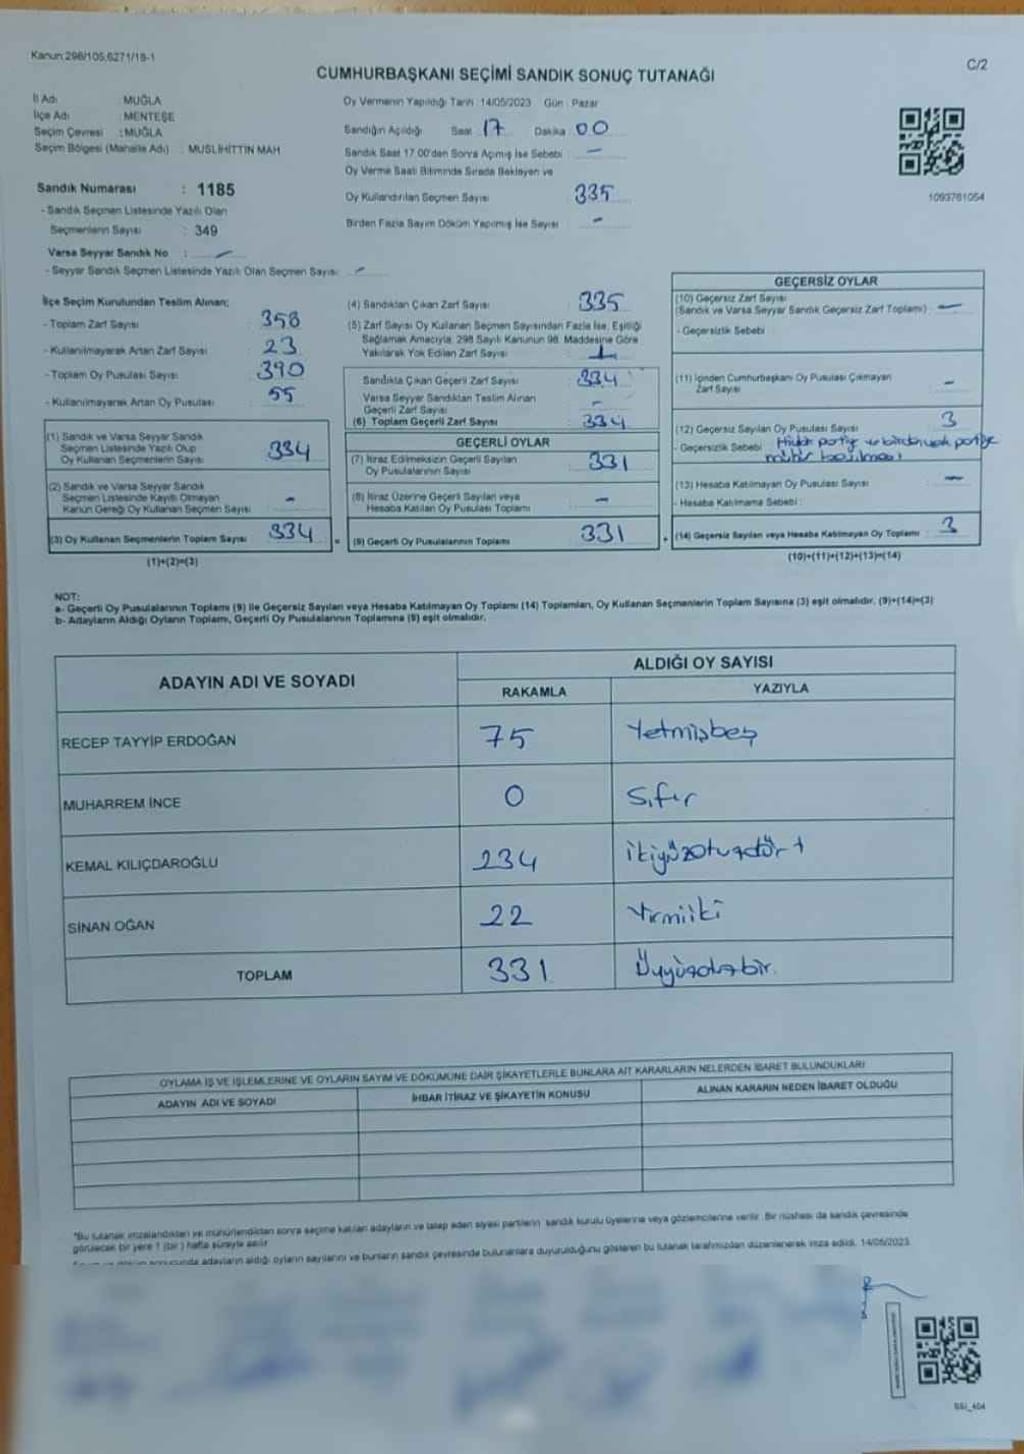 Kanun:298/105,6271/18-1
C/2
CUMHURBAŞKANI SEÇİMİ SANDIK SONUÇ TUTANAĞI
İl Adı : MUĞLA
İlçe Adı : MENTEŞE
Seçim Çevresi : MUĞLA
Seçim Bölgesi (Mahalle Adı) : MUSLİHİTTİN MAH
Sandık Numarası : 1185
- Sandık Seçmen Listesinde Yazılı Olan
Seçmenlerin Sayısı : 349
Varsa Seyyar Sandık No : -
- Seyyar Sandık Seçmen Listesinde Yazılı Olan Seçmen Sayısı: -
Oy Vermenin Yapıldığı Tarih : 14/05/2023 Gün : Pazar
Sandığın Açıldığı Saat 17 Dakika 00
Sandık Saat 17.00'den Sonra Açılmış İse Sebebi : -
Oy Verme Saati Bitiminde Sırada Bekleyen ve
Oy Kullandırılan Seçmen Sayısı 335
Birden Fazla Sayım Döküm Yapılmış İse Sayısı -
1093761054
İlçe Seçim Kurulundan Teslim Alınan;
- Toplam Zarf Sayısı 358
- Kullanılmayarak Artan Zarf Sayısı 23
- Toplam Oy Pusulası Sayısı 390
- Kullanılmayarak Artan Oy Pusulası 55
(1) Sandık ve Varsa Seyyar Sandık
Seçmen Listesinde Yazılı Olup
Oy Kullanan Seçmenlerin Sayısı 334
(2) Sandık ve Varsa Seyyar Sandık
Seçmen Listesinde Kayıtlı Olmayan
Kanun Gereği Oy Kullanan Seçmen Sayısı -
(3) Oy Kullanan Seçmenlerin Toplam Sayısı 334
(1)+(2)=(3)
(4) Sandıktan Çıkan Zarf Sayısı 335
(5) Zarf Sayısı Oy Kullanan Seçmen Sayısından Fazla İse, Eşitliği
Sağlamak Amacıyla, 298 Sayılı Kanunun 98. Maddesine Göre
Yakılarak Yok Edilen Zarf Sayısı 1
Sandıkta Çıkan Geçerli Zarf Sayısı 334
Varsa Seyyar Sandıktan Teslim Alınan
Geçerli Zarf Sayısı -
(6) Toplam Geçerli Zarf Sayısı 334
GEÇERLİ OYLAR
(7) İtiraz Edilmeksizin Geçerli Sayılan
Oy Pusulalarının Sayısı 331
(8) İtiraz Üzerine Geçerli Sayılan veya
Hesaba Katılan Oy Pusulası Toplamı -
= (9) Geçerli Oy Pusulalarının Toplamı 331
GEÇERSİZ OYLAR
(10) Geçersiz Zarf Sayısı
(Sandık ve Varsa Seyyar Sandık Geçersiz Zarf Toplamı) -
- Geçersizlik Sebebi :
(11) İçinden Cumhurbaşkanı Oy Pusulası Çıkmayan
Zarf Sayısı -
(12) Geçersiz Sayılan Oy Pusulası Sayısı 3
- Geçersizlik Sebebi :
(13) Hesaba Katılmayan Oy Pusulası Sayısı -
- Hesaba Katılmama Sebebi :
+ (14) Geçersiz Sayılan veya Hesaba Katılmayan Oy Toplamı : 3
(10)+(11)+(12)+(13)=(14)
NOT:
a- Geçerli Oy Pusulalarının Toplamı (9) ile Geçersiz Sayılan veya Hesaba Katılmayan Oy Toplamı (14) Toplamları, Oy Kullanan Seçmenlerin Toplam Sayısına (3) eşit olmalıdır. (9)+(14)=(3)
b- Adayların Aldığı Oyların Toplamı, Geçerli Oy Pusulalarının Toplamına (9) eşit olmalıdır.
ADAYIN ADI VE SOYADI
ALDIĞI OY SAYISI
RAKAMLA YAZIYLA
RECEP TAYYİP ERDOĞAN 75 Yetmişbeş
MUHARREM İNCE 0 Sıfır
KEMAL KILIÇDAROĞLU 234 ikiyüzotuzdört
SİNAN OĞAN 22 Yirmiiki
TOPLAM 331 Üçyüzotuzbir.
OYLAMA İŞ VE İŞLEMLERİNE VE OYLARIN SAYIM VE DÖKÜMÜNE DAİR ŞİKAYETLERLE BUNLARA AİT KARARLARIN NELERDEN İBARET BULUNDUKLARI
ADAYIN ADI VE SOYADI İHBAR İTİRAZ VE ŞİKAYETİN KONUSU ALINAN KARARIN NEDEN İBARET OLDUĞU
*Bu tutanak imzalandıktan ve mühürlendikten sonra seçime katılan adayların ve talep eden siyasi partilerin sandık kurulu üyelerine veya gözlemcilerine verilir. Bir nüshası da sandık çevresinde
görülecek bir yere 1 (bir) hafta süreyle asılır.
adayların aldığı oyların sayılarını ve bunların sandık çevresinde bulunanlara duyurulduğunu gösteren bu tutanak tarafımızdan düzenlenerek imza edildi. 14/05/2023
SSI_404